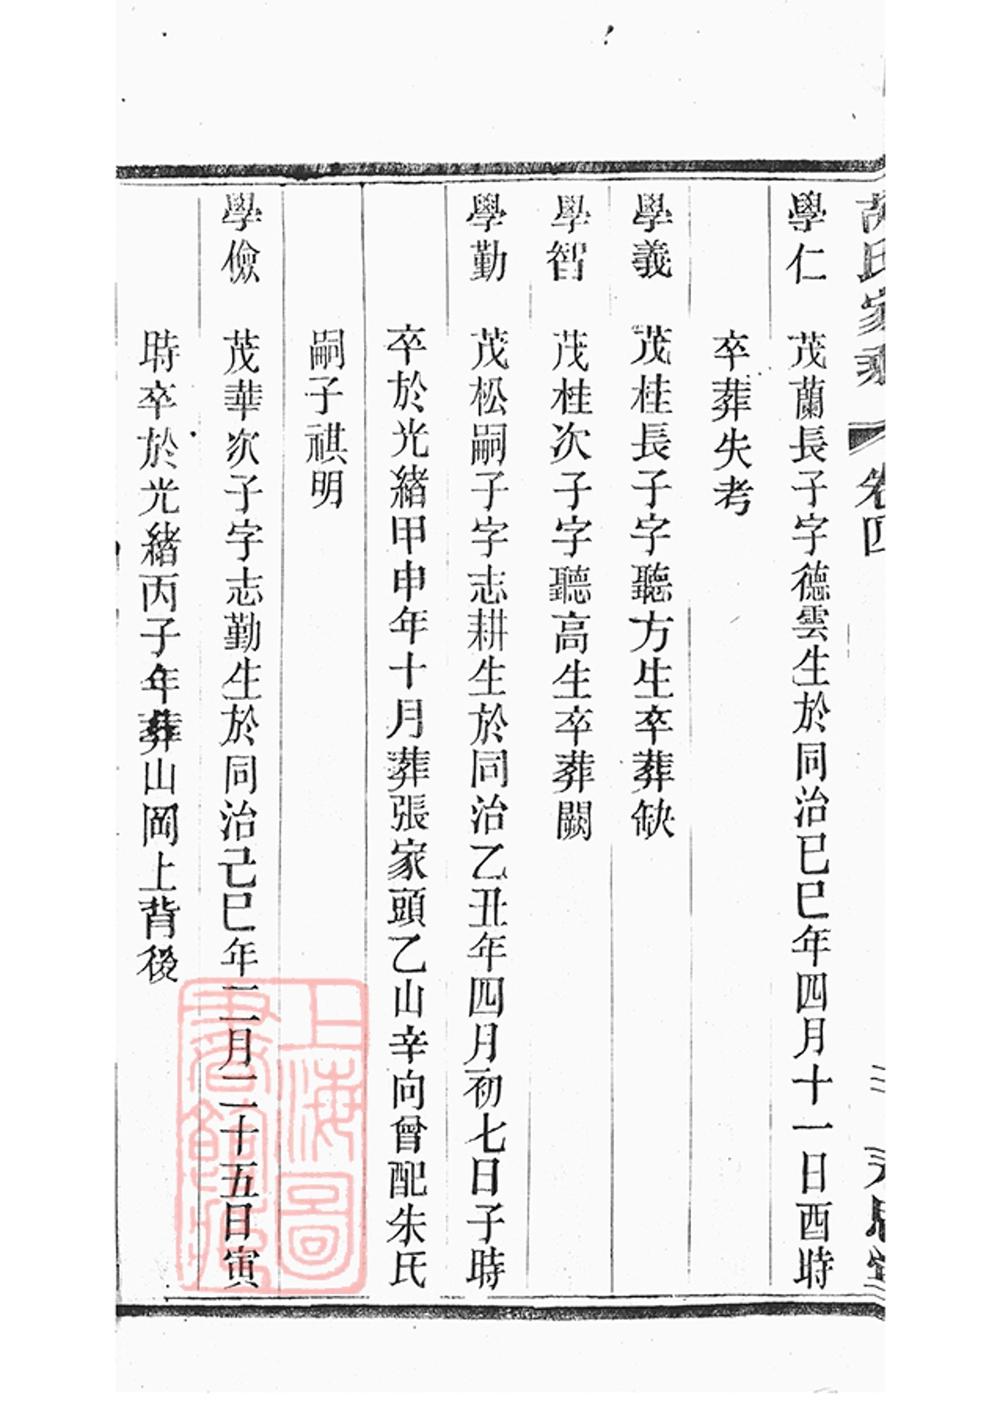 氏家乘 卷四
學仁 茂蘭長子字德雲生於同治已巳年四月十一日酉時
卒葬失考
學義 茂桂長子字聽方生卒葬缺
學智 茂桂次子字聽高生卒葬闕
學勤 茂松嗣子字志耕生於同治乙丑年四月初七日子時
卒於光緒甲申年十月葬張家頭乙山辛向曾配朱氏
嗣子祺明
學儉 茂華次子字志勤生於同治己巳年二月二十五日寅
時卒於光緒丙子年葬山岡上背後
上海圖
書館藏